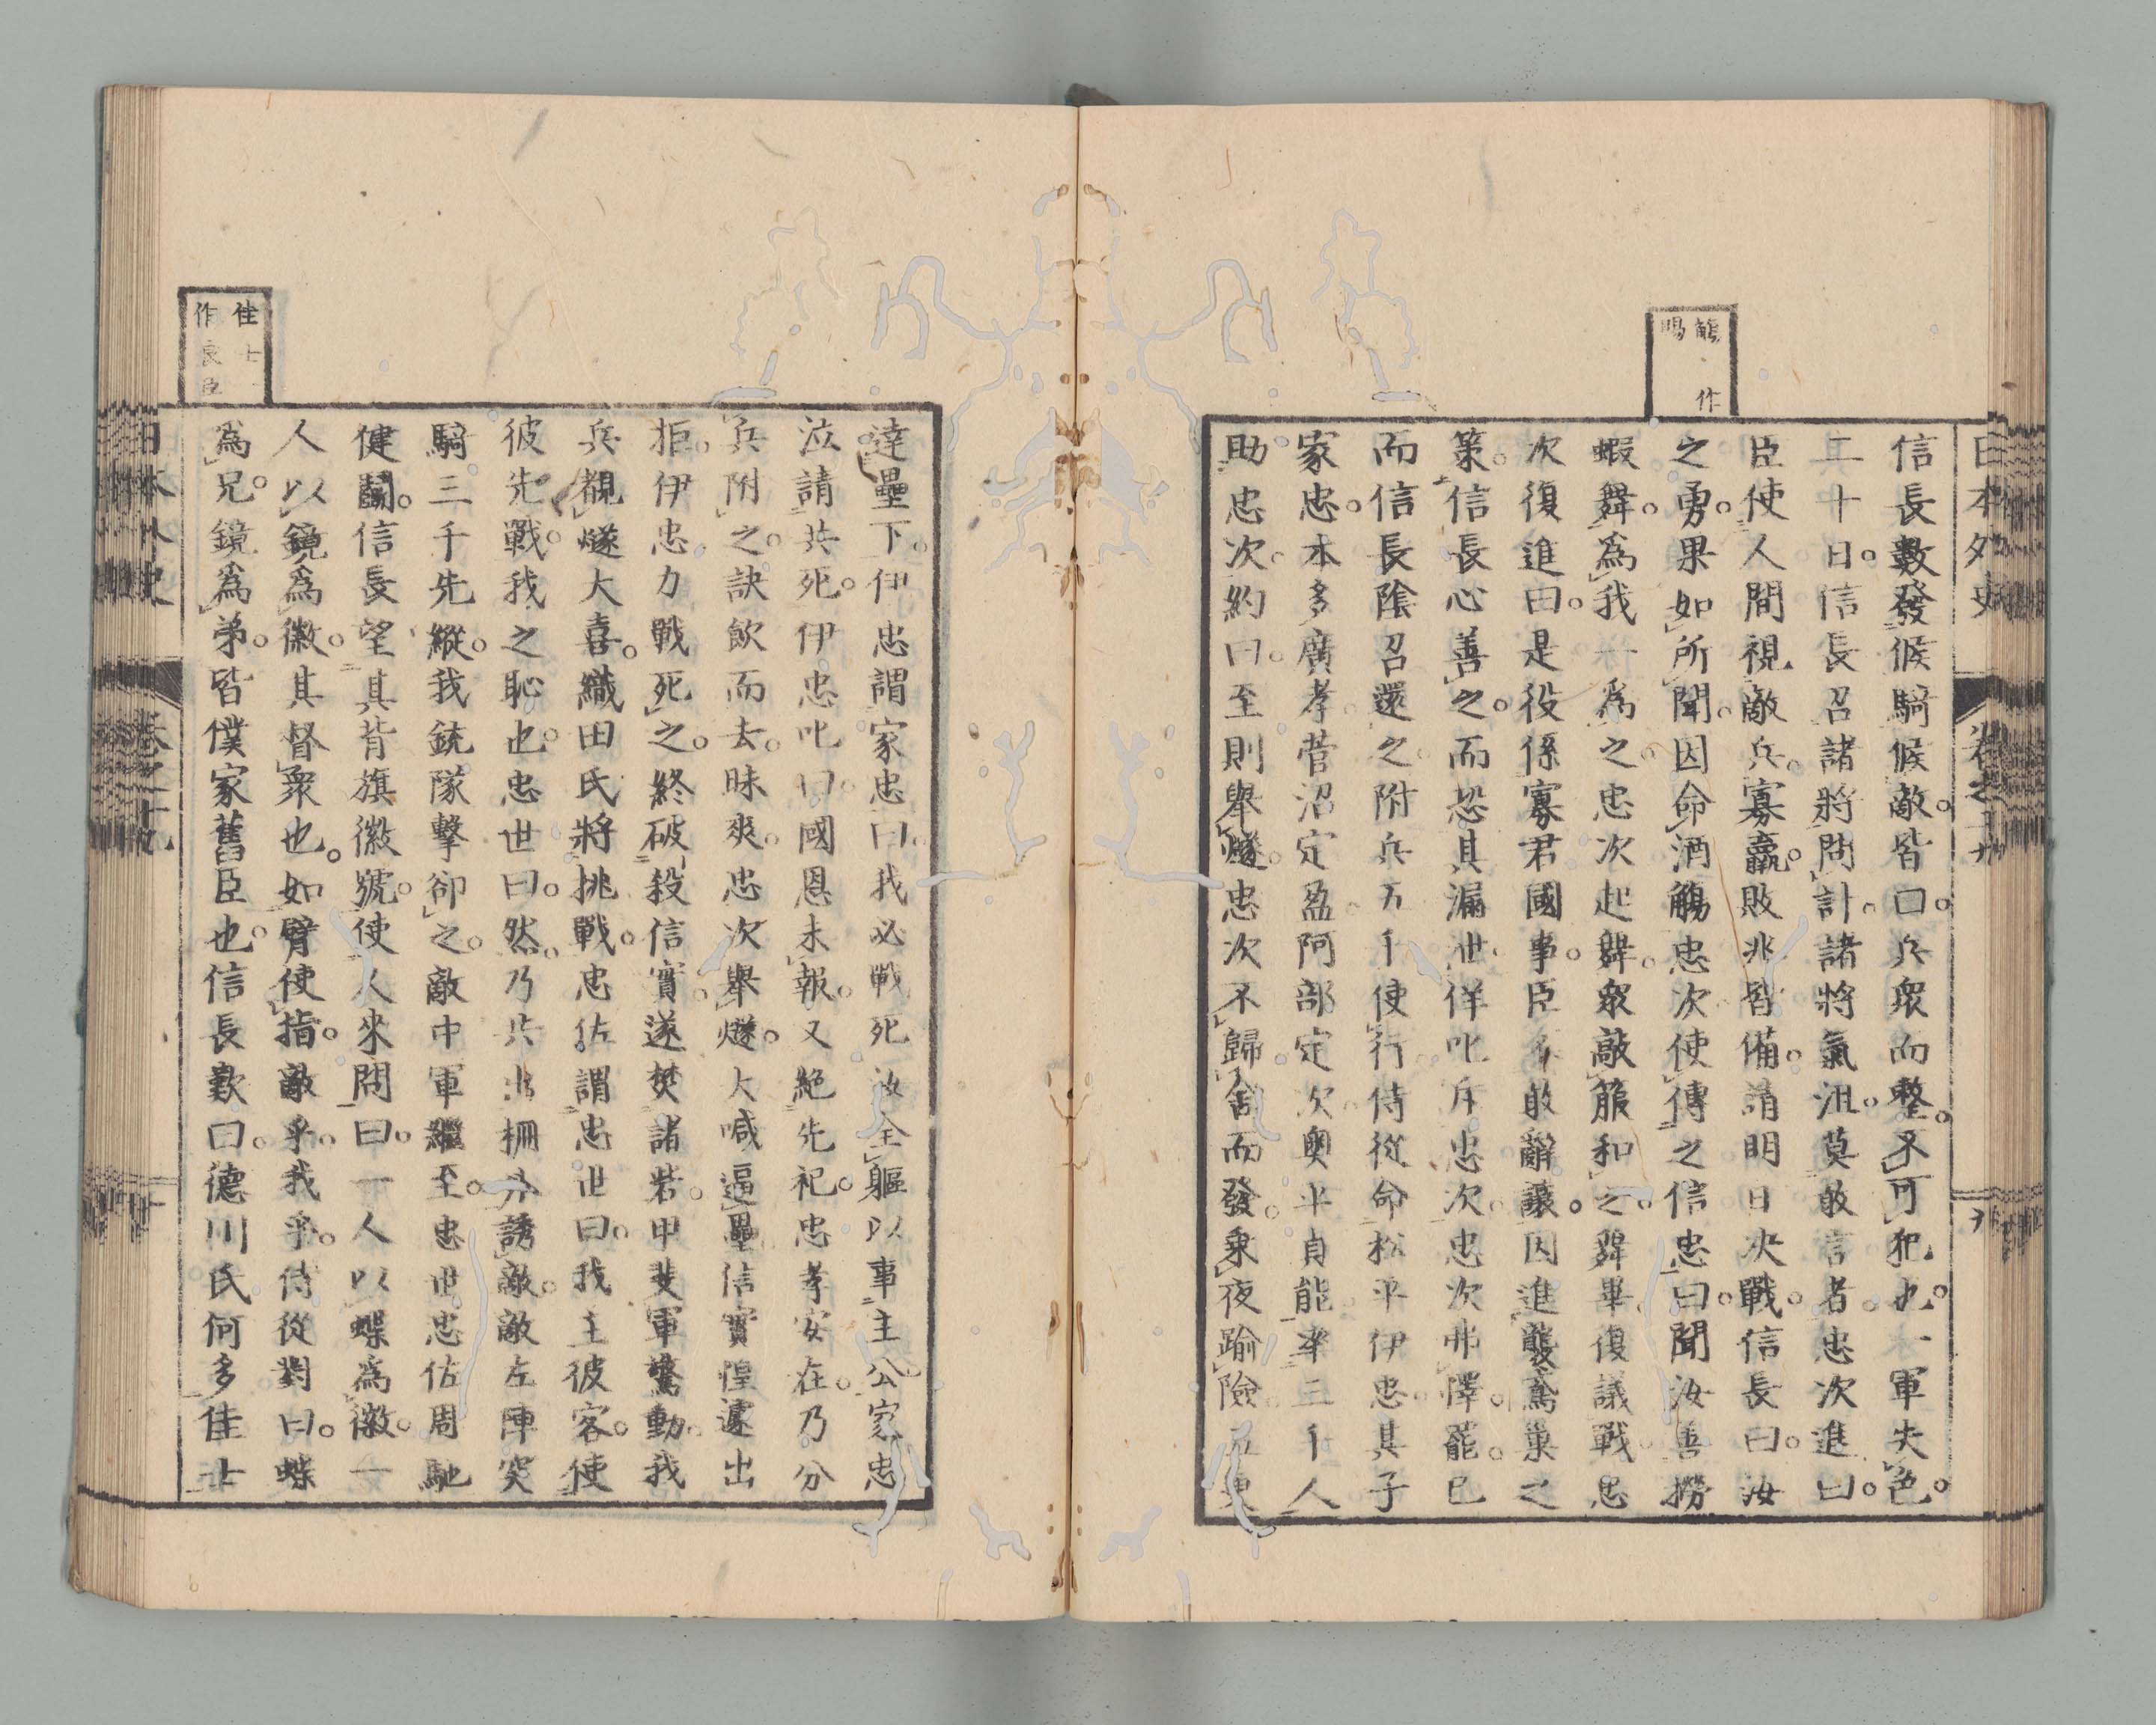 日本外史
卷之十九
九
觴作
賜
信長數發候騎候敵。皆曰。兵衆而整。不可犯也。一軍失色。
二十日。信長召諸將問計。諸將氣沮。莫敢言者。忠次進曰。
臣使人間視敵兵。寡羸。敗兆皆備。請明日決戰。信長曰。汝
之勇。果如所聞。因命酒觴忠次。使傳之信忠。曰。聞汝善撈
蝦舞。爲我一爲之。忠次起舞。衆敲箙和之。舞畢。復議戰。忠
次復進曰。是役係寡君國事。臣不敢辭讓。因進襲鳶巢之
策。信長心善之。而恐其漏世。佯叱斥忠次。忠次弗懌。罷。已
而信長陰召還之。附兵五千。使行。侍從命松平伊忠。其子
家忠。本多廣孝。菅沼定盈。阿部定次。奧平貞能。率三千人
助忠次。約曰。至則舉燧。忠次不歸舍而發。乘夜踰險。五更
達壘下。伊忠謂家忠曰。我必戰死。汝全軀以事主公。家忠
泣請共死。伊忠叱曰。國恩未報。又絶先祀。忠孝安在。乃分
兵附之。訣飮而去。昧爽。忠次舉燧。大喊逼壘。信實惶遽出
拒。伊忠力戰死之。終破殺信實。遂焚諸砦。甲斐軍驚動。我
兵覩燧大喜。織田氏將挑戰。忠佐謂忠世曰。我主彼客。使
彼先戰。我之恥也。忠世曰。然。乃共出柵外誘敵。敵左陣突
騎三千先縱。我銃隊擊卻之。敵中軍繼至。忠世忠佐周馳
健鬭。信長望其背旗徽號。使人來問曰。一人以蝶爲徽。一
人以鏡爲徽。其督衆也。如臂使指。敵乎。我乎。侍從對曰。蝶
爲兄。鏡爲弟。皆僕家舊臣也。信長歎曰。德川氏何多佳士
佳士
作良臣
日本外史
卷之十九